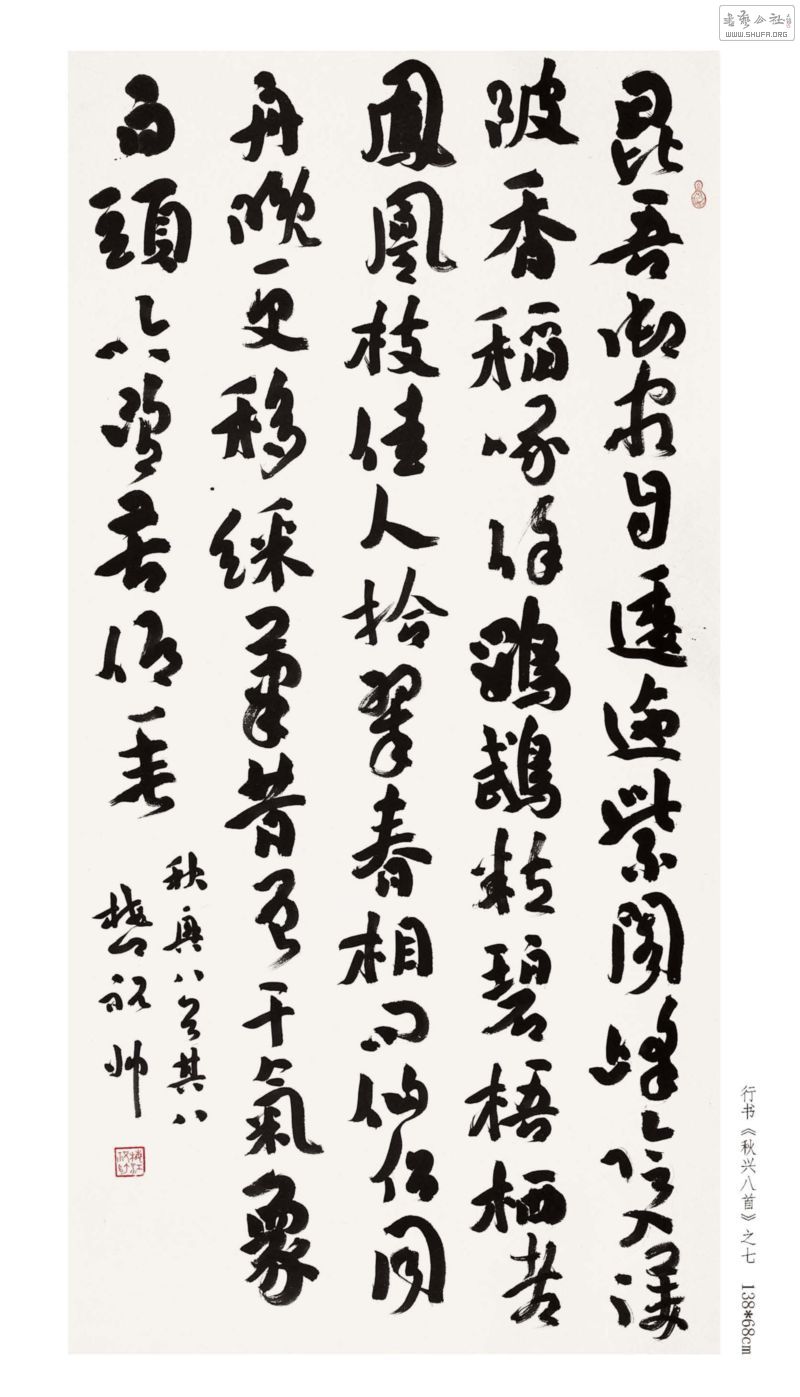 昆吾御宿自逶迤紫閣峰陰入渼
陂香稻啄餘鸚鵡粒碧梧栖老
鳳凰枝佳人拾翠春相問仙侶同
舟晚更移綵筆昔曾干氣象
白頭吟望苦低垂
秋興八首其八
祝帅
行书《秋兴八首》之七 138*68cm
书艺公社
WWW.SHUFA.ORG